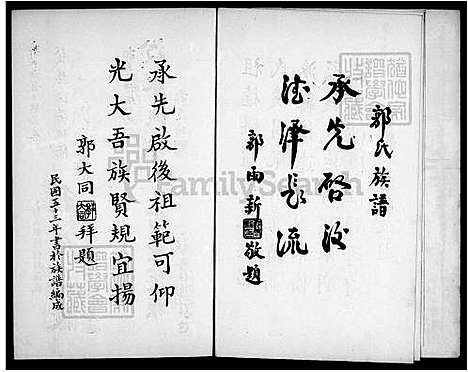 郭氏族譜
承先啓後
德澤長流
郭雨新敬題
承先啟後祖範可仰
光大吾族賢規宜揚
郭大同拜題
民國五十三年書於族譜編成
FamilySearch